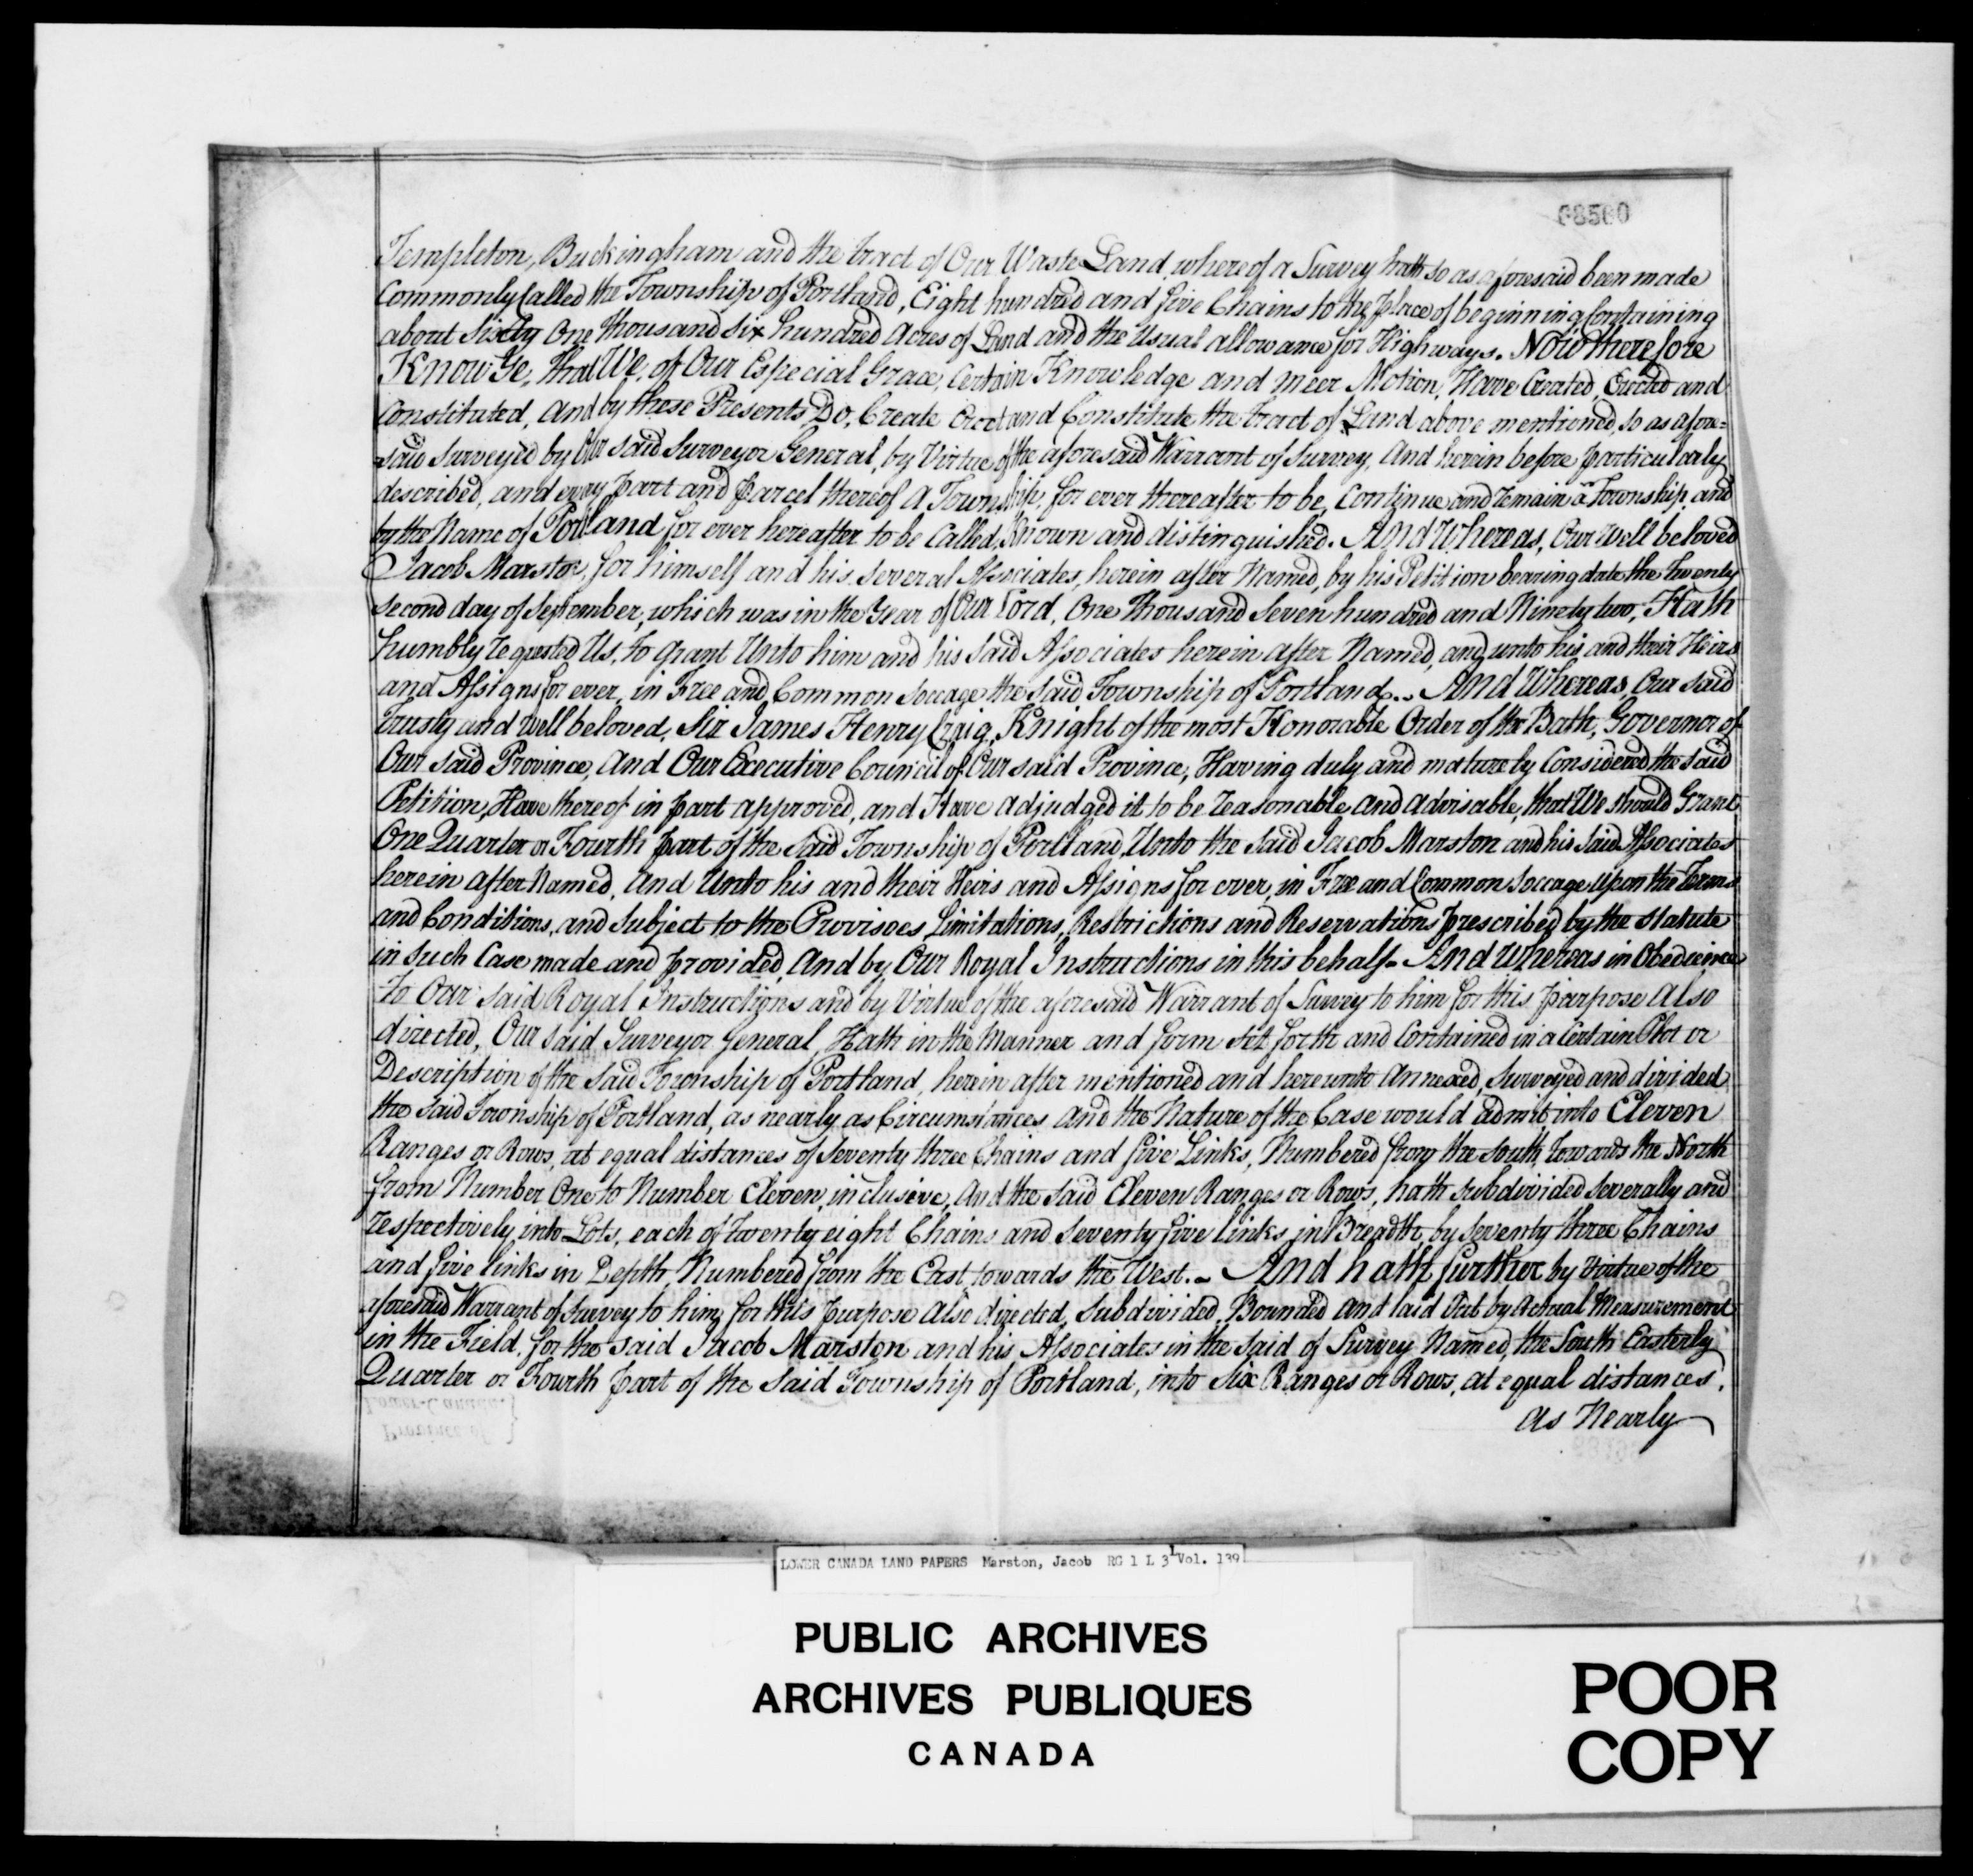 68560
Templeton, Buckingham and the tract of Our Waste Land whereof a Survey hath so as aforesaid been made
Commonly Called the Township of Portland, Eight hundred and five Chains to the place of beginning Containing
about Sixty One thousand Six hundred Acres of Land and the Usual allowance for Highways. Now therefore
Know Ye, that We, of Our Especial Grace, Certain Knowledge and meer Motion, Have Created, Erected and
Constituted, and by these Presents Do, Create Erect and Constitute the tract of Land above mentioned, so as afore=
=said Surveyed by Our said Surveyor General, by Virtue of the aforesaid Warrant of Survey, And herein before particularly
described, and every part and parcel thereof A Township, for ever thereafter to be, Continue and remain a Township and
by the Name of Portland for ever hereafter to be Called, Known and distinguished. And Whereas, Our Well beloved
Jacob Marston, for himself and his several Associates, herein after Named, by his Petition bearing date the twenty
second day of September, which was in the Year of Our Lord, One thousand Seven hundred and Ninety two, Hath
humbly requested Us, to grant Unto him and his Said Associates herein after Named, and unto his and their Heirs
and Assigns for ever, in Free and Common Soccage the Said Township of Portland.. And Whereas, Our said
trusty and well beloved, Sir James Henry Craig, Knight of the most Honorable Order of the Bath, Governor of
Our said Province, And Our Executive Council of Our said Province, Having duly and maturely Considered the said
Petition, Have thereof in part approved, and Have adjudged it to be reasonable and advisable, that We should Grant
One Quarter or Fourth part of the Said Township of Portland, Unto the Said Jacob Marston and his Said Associates
herein after Named, And Unto his and their Heirs and Assigns for ever, in Free and Common Soccage Upon the Terms
and Conditions, and Subject to the Provisoes Limitations, Restrictions and Reservations prescribed by the Statute
in Such Case made and provided, And by Our Royal Instructions in this behalf - And Whereas in Obedience
to Our said Royal Instructions and by Virtue of the aforesaid Warrant of Survey to him for this purpose also
directed, Our said Surveyor General, Hath in the Manner and form Set forth and Contained in a Certain Plot or
Description of the Said Township of Portland, herein after mentioned and hereunto Annexed, Surveyed and divided
the said Township of Portland, as nearly as Circumstances and the Nature of the Case would admit, into Eleven
Ranges or Rows, at equal distances of Seventy three Chains and five Links, Numbered from the South, towards the North
from Number One to Number Eleven, inclusive, And the Said Eleven Ranges or Rows, hath Subdivided Severally and
respectively, into Lots, each of twenty eight Chains and Seventy five links in Breadth, by Seventy three Chains
and five links in Depth Numbered from the East towards the West. - And hath further by Virtue of the
aforesaid Warrant of Survey to him, for this purpose also directed, Subdivided, Bounded and laid Out by Actual Measurement
in the Field, for the said Jacob Marston and his Associates in the said of Survey Named, the South Easterly
Quarter or Fourth part of the Said Township of Portland, into Six Ranges or Rows, at equal distances,
as Nearly
Lower-Canada.
Province of
LOWER CANADA LAND PAPERS Marston, Jacob RG 1 L 3L Vol. 139
PUBLIC ARCHIVES
ARCHIVES PUBLIQUES
CANADA
POOR
COPY